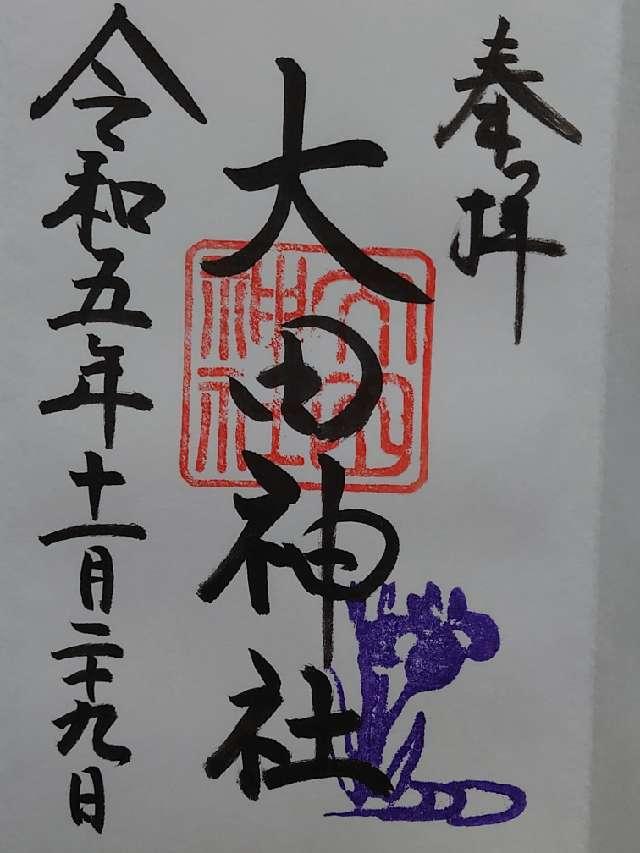 奉拝
大田神社
大田神社
令和五年十一月二十九日